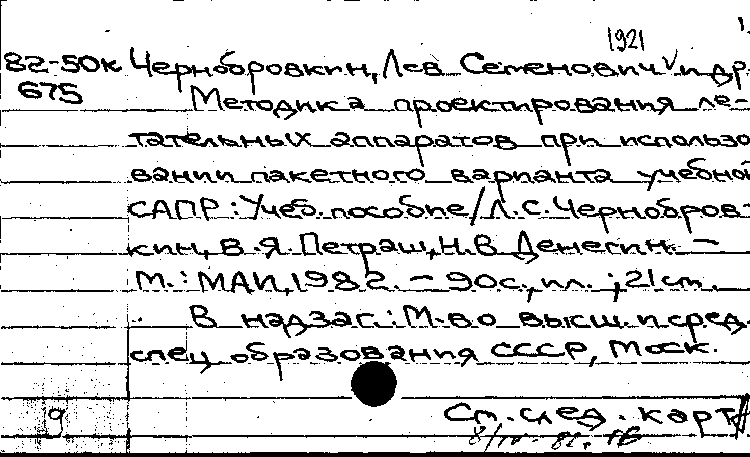 1921
82-50к Чернобровкин, Лев Семенович и др
675
Методика проектирования ле-
тательных аппаратов при использо
вании пакетного варианта учебной
САПР: Учеб. пособие / Л.С. Чернобров-
кин, В.Я. Петраш, Н.В. Денегин. —
М.: МАИ, 1982. — 90с., ил. ; 21 см.
В надзаг.: М-во высш. и сред.
спец. образования СССР, Моск.
g
См. след. карт